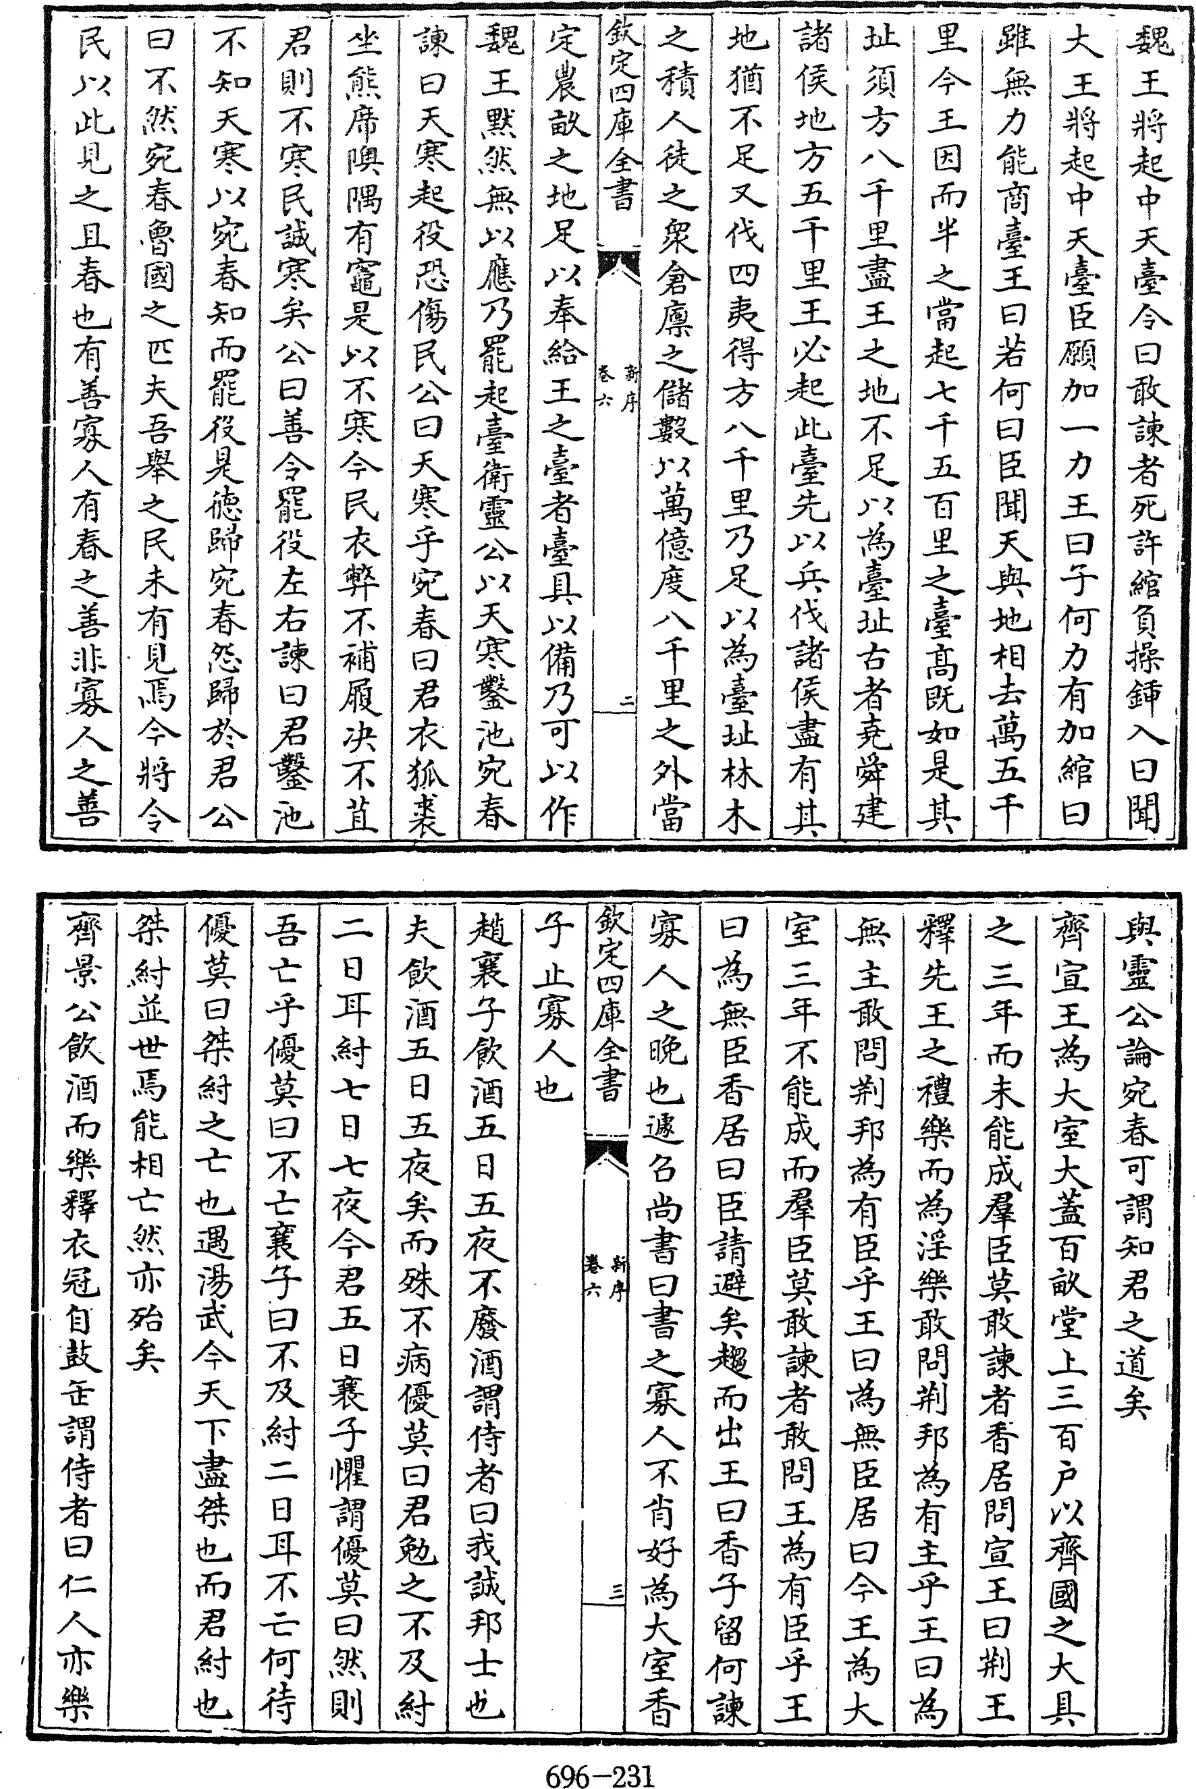 魏王將起中天臺令曰敢諫者死許綰負操鍤入曰聞
大王將起中天臺臣願加一力王曰子何力有加綰曰
雖無力能商臺王曰若何曰臣聞天與地相去萬五千
里今王因而半之當起七千五百里之臺髙既如是其
址須方八千里盡王之地不足以為臺址古者堯舜建
諸侯地方五千里王必起此臺先以兵伐諸侯盡有其
地猶不足又伐四夷得方八千里乃足以為臺址林木
之積人徒之衆倉廪之儲數以萬億度八千里之外當
欽定四庫全書
新序
卷六
二
定農畝之地足以奉給王之臺者臺具以備乃可以作
魏王黙然無以應乃罷起臺衛靈公以天寒鑿池宛春
諫曰天寒起役恐傷民公曰天寒乎宛春曰君衣狐裘
坐熊席隩隅有竈是以不寒今民衣弊不補履决不苴
君則不寒民誠寒矣公曰善令罷役左右諫曰君鑿池
不知天寒以宛春知而罷役是徳歸宛春怨歸於君公
曰不然宛春魯國之匹夫吾舉之民未有見焉今將令
民以此見之且春也有善寡人有春之善非寡人之善
與靈公論宛春可謂知君之道矣
齊宣王為大室大蓋百畝堂上三百户以齊國之大具
之三年而未能成羣臣莫敢諫者香居問宣王曰荆王
釋先王之禮樂而為淫樂敢問荆邦為有主乎王曰為
無主敢問荆邦為有臣乎王曰為無臣居曰今王為大
室三年不能成而羣臣莫敢諫者敢問王為有臣乎王
曰為無臣香居曰臣請避矣趨而出王曰香子留何諫
寡人之晚也遽召尚書曰書之寡人不肖好為大室香
欽定四庫全書
新序
卷六
三
子止寡人也
趙襄子飲酒五日五夜不廢酒謂侍者曰我誠邦士也
夫飲酒五日五夜矣而殊不病優莫曰君勉之不及紂
二日耳紂七日七夜今君五日襄子懼謂優莫曰然則
吾亡乎優莫曰不亡襄子曰不及紂二日耳不亡何待
優莫曰桀紂之亡也遇湯武今天下盡桀也而君紂也
桀紂並世焉能相亡然亦殆矣
齊景公飲酒而樂釋衣冠自鼓缶謂侍者曰仁人亦樂
696-231